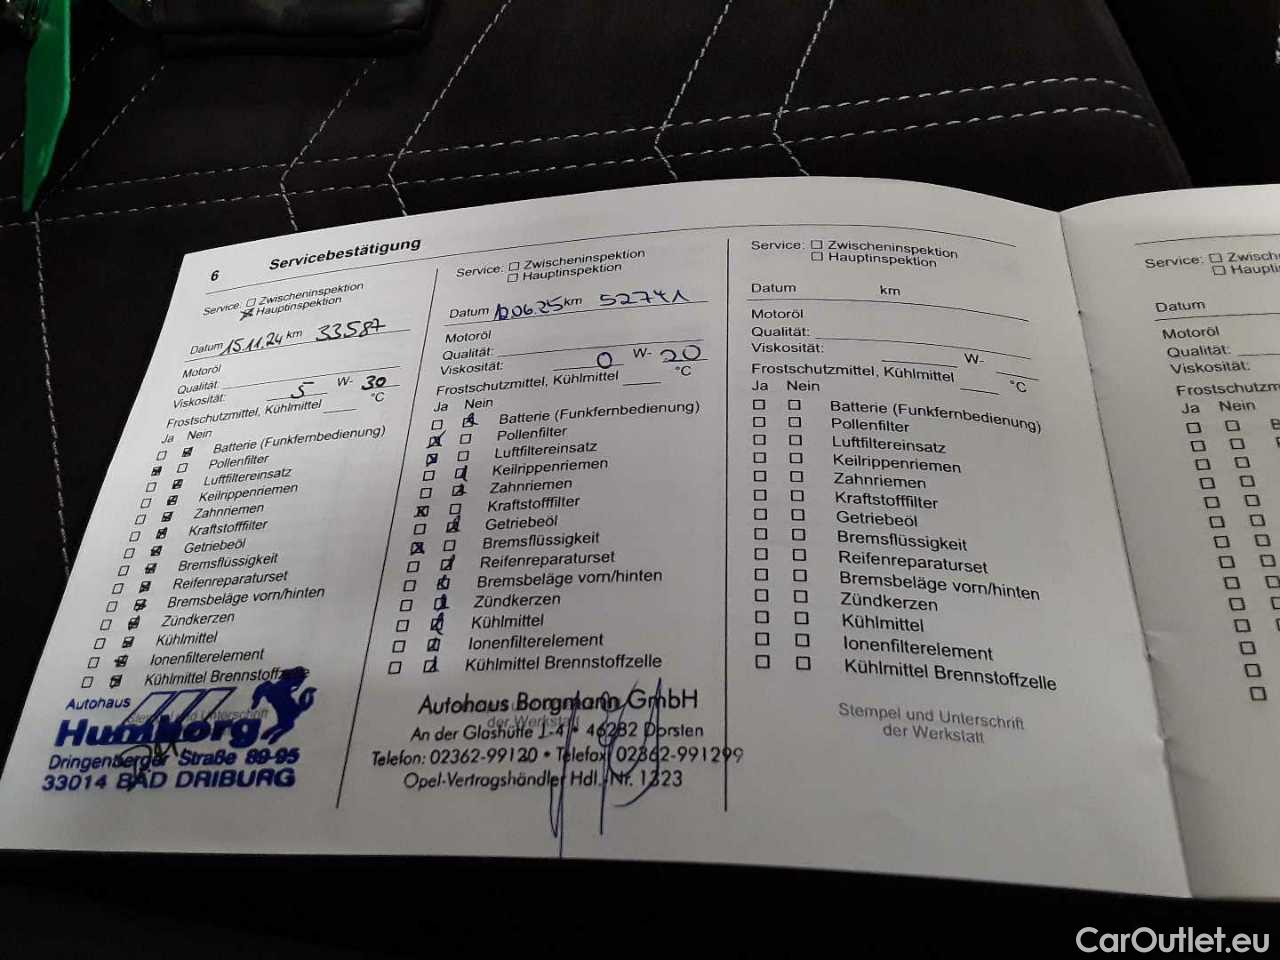 6 Servicebestätigung
Service: Zwischeninspektion
Hauptinspektion
Datum 15.11.24 km 33587
Motoröl
Qualität:
Viskosität: 5 W- 30
Frostschutzmittel, Kühlmittel °C
Ja Nein
Batterie (Funkfernbedienung)
Pollenfilter
Luftfiltereinsatz
Keilrippenriemen
Zahnriemen
Kraftstofffilter
Getriebeöl
Bremsflüssigkeit
Reifenreparaturset
Bremsbeläge vorn/hinten
Zündkerzen
Kühlmittel
Ionenfilterelement
Kühlmittel Brennstoffzelle
Stempel und Unterschrift
Autohaus
Dringenberger Straße 89-95
33014 BAD DRIBURG
Service: Zwischeninspektion
Hauptinspektion
Datum 12.06.25 km 52741
Motoröl
Qualität:
Viskosität: 0 W- 20
Frostschutzmittel, Kühlmittel °C
Ja Nein
Batterie (Funkfernbedienung)
Pollenfilter
Luftfiltereinsatz
Keilrippenriemen
Zahnriemen
Kraftstofffilter
Getriebeöl
Bremsflüssigkeit
Reifenreparaturset
Bremsbeläge vorn/hinten
Zündkerzen
Kühlmittel
Ionenfilterelement
Kühlmittel Brennstoffzelle
Autohaus Borgmann GmbH
der Werkstatt
An der Glashütte 1-4 • 46282 Dorsten
Telefon: 02362-99120 • Telefax: 02362-991299
Opel-Vertragshändler Hdl.-Nr. 1323
Service: Zwischeninspektion
Hauptinspektion
Datum km
Motoröl
Qualität:
Viskosität: W-
Frostschutzmittel, Kühlmittel °C
Ja Nein
Batterie (Funkfernbedienung)
Pollenfilter
Luftfiltereinsatz
Keilrippenriemen
Zahnriemen
Kraftstofffilter
Getriebeöl
Bremsflüssigkeit
Reifenreparaturset
Bremsbeläge vorn/hinten
Zündkerzen
Kühlmittel
Ionenfilterelement
Kühlmittel Brennstoffzelle
Stempel und Unterschrift
der Werkstatt
Service: Zwische
Haupti
Datum
Motoröl
Qualität:
Viskosität:
Frostschutzm
Ja Nein
B
CarOutlet.eu